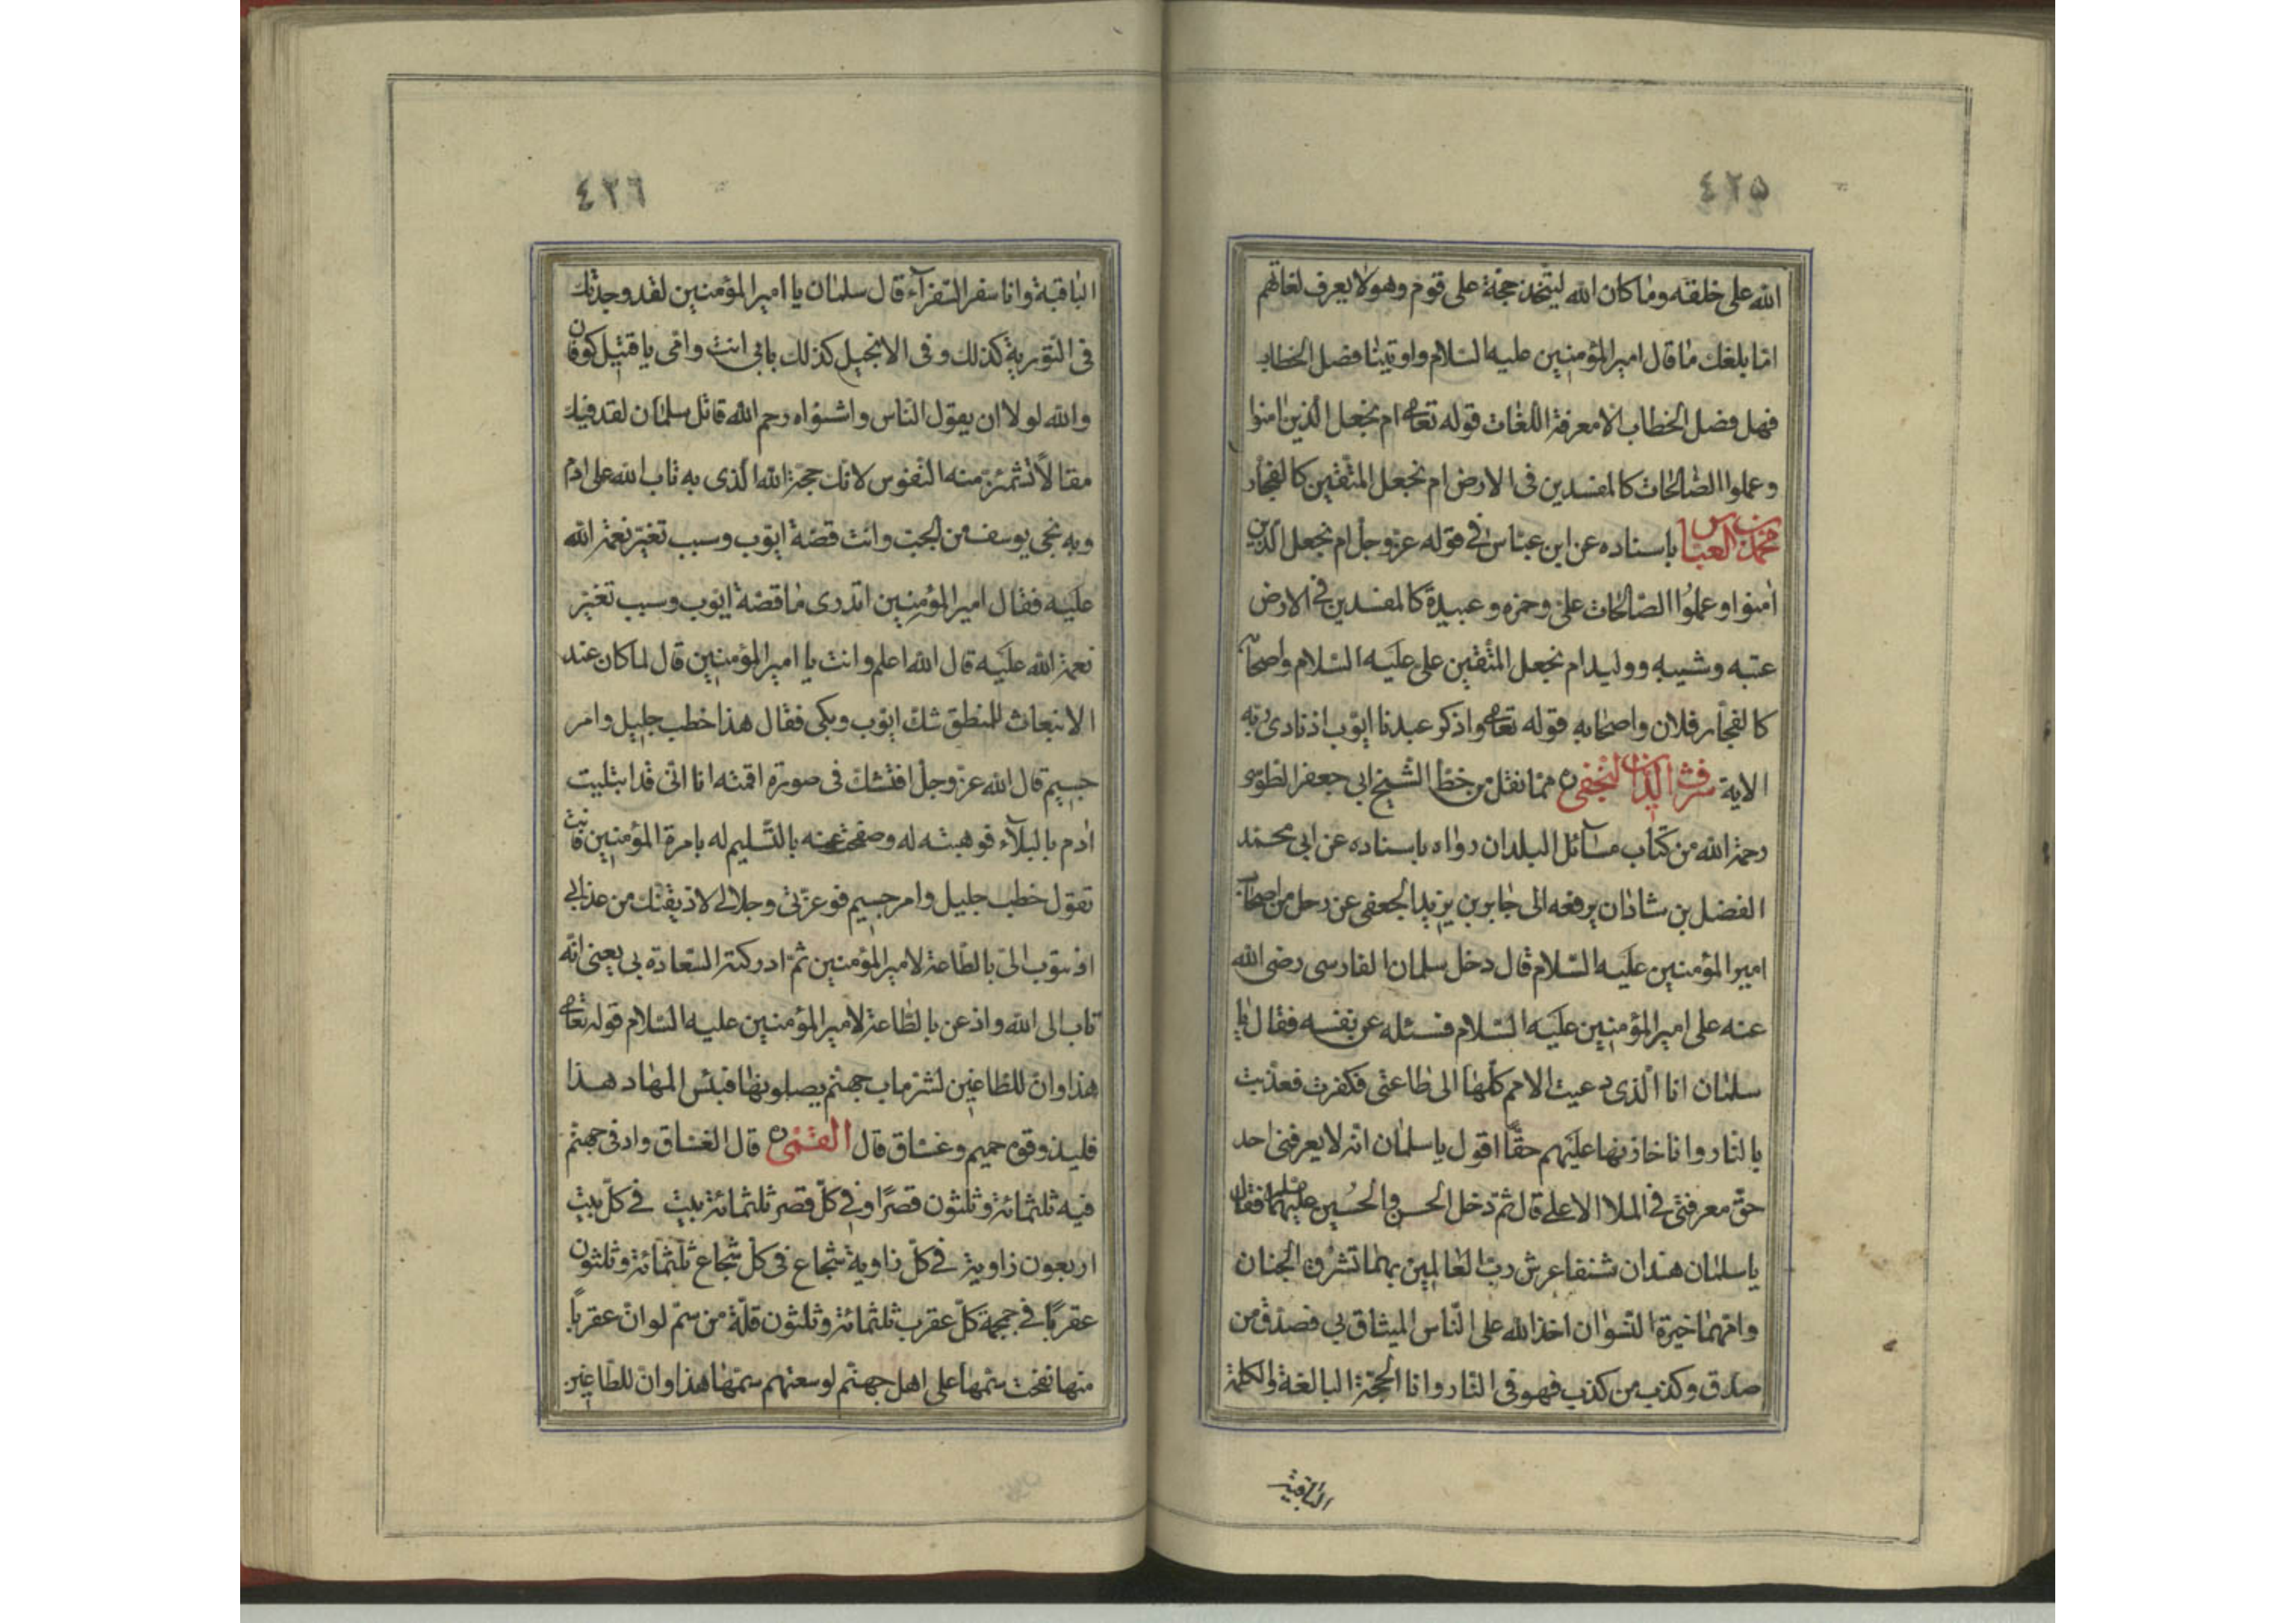 ٤٢٥
الله على خلقه وما كان الله ليتخذ حجة على قوم وهو لا يعرف لغاتهم
اما بلغك ما قال امير المؤمنين عليه السلام واوتينا فصل الخطاب
فهل فصل الخطاب الا معرفة اللغات قوله تعالى ام نجعل الذين امنوا
وعملوا الصالحات كالمفسدين فى الارض ام نجعل المتقين كالفجار
محمد بن العباس باسناده عن ابن عباس في قوله عز وجل ام نجعل الذين
امنوا وعملوا الصالحات علي وحمزه وعبيدة كالمفسدين في الارض
عتبه وشيبه ووليد ام نجعل المتقين على عليه السلام واصحابه
كالفجار فلان واصحابه قوله تعالى واذكر عبدنا ايوب اذ نادى ربه
الاية شرف الدين النجفي ره مما نقل من خط الشيخ ابي جعفر الطوسي
رحمة الله من كتاب مسآئل البلدان رواه باسناده عن ابى محمد
الفضل بن شاذان يرفعه الى جابر بن يزيد الجعفى عن رجل من اصحاب
امير المؤمنين عليه السلام قال دخل سلمان الفارسى رضى الله
عنه على امير المؤمنين عليه السلام فسئله عن نفسه فقال يا
سلمان انا الذى دعيت الامم كلها الى طاعتى فكفرت فعذبت
بالنار وانا خازنها عليهم حقا اقول يا سلمان انه لا يعرفنى احد
حق معرفتى فى الملا الاعلى قال ثم دخل الحسن والحسين عليهما فقال
يا سلمان هذان شنفا عرش رب العالمين بهما تشرق الجنان
وامهما خيرة النسوان اخذ الله على الناس الميثاق بي فصدق من
صدق وكذب من كذب فهو فى النار وانا الحجة البالغة والكلمة
الباقية
٤٢٦
الباقية وانا سفر السفرآء قال سلمان يا امير المؤمنين لقد وجدتك
فى التورية كذلك وفى الانجيل كذلك بابى انت وامى يا قتيل كوفان
والله لولا ان يقول الناس واشوقاه رحم الله قاتل سلمان لقلت فيك
مقالا تشمئز منه النفوس لانك حجة الله الذى به تاب الله على ادم
وبه نجى يوسف من الجب وانت قصة ايوب وسبب تغير نعمة الله
عليه فقال امير المؤمنين اتدرى ما قصة ايوب وسبب تغير
نعمة الله عليه قال الله اعلم وانت يا امير المؤمنين قال لما كان عند
الانبعاث للمنطق شك ايوب وبكى فقال هذا خطب جليل وامر
جسيم قال الله عز وجل افتشك فى صورة اقمته انا انى قد ابتليت
ادم بالبلآء فوهبته له وصفحت عنه بالتسليم له بامرة المؤمنين فانت
تقول خطب جليل وامر جسيم فوعزتى وجلالى لاذيقنك من عذابى
او تتوب الى بالطاعة لامير المؤمنين ثم ادركته السعادة بي يعنى انه
تاب الى الله واذعن بالطاعة لامير المؤمنين عليه السلام قوله تعالى
هذا وان للطاغين لشر ماب جهنم يصلونها فبئس المهاد هذا
فليذوقوه حميم وغساق قال القمي ره قال الغساق واد فى جهنم
فيه ثلثمائة وثلثون قصرا وفي كل قصر ثلثمائة بيت في كل بيت
اربعون زاوية في كل زاوية شجاع فى كل شجاع ثلثمائة وثلثون
عقربا فى جمجمة كل عقرب ثلثمائة وثلثون قلة من سم لو ان عقربا
منها نفخت سمها على اهل جهنم لوسعتهم سمها هذا وان للطاغين